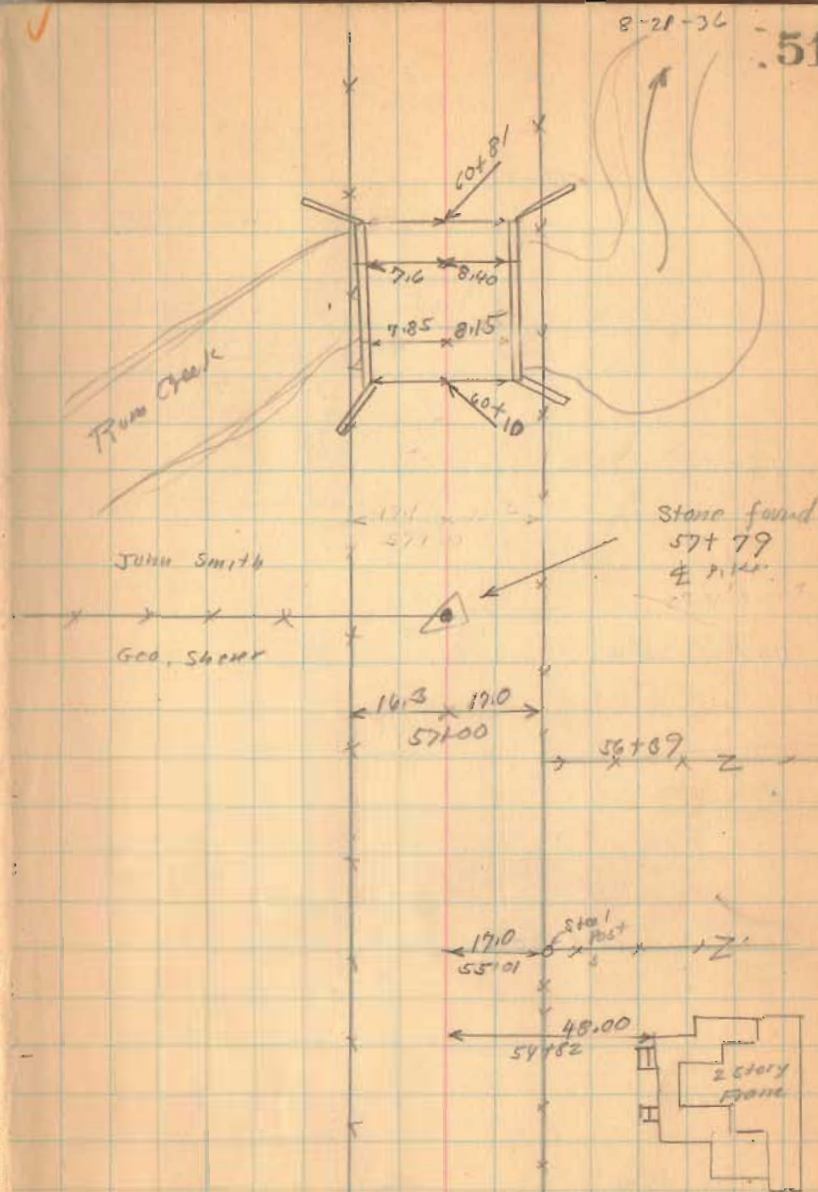 8-28-36
51
60+81
7.6 8.40
7.85 8.15
60+10
Rum Creek
Stone found
57+79
John Smith
Geo. Sherer
16.3 17.0
57+00
56+39
17.0
55+01
Steel
Post
48.00
54+82
2 Story
Frame